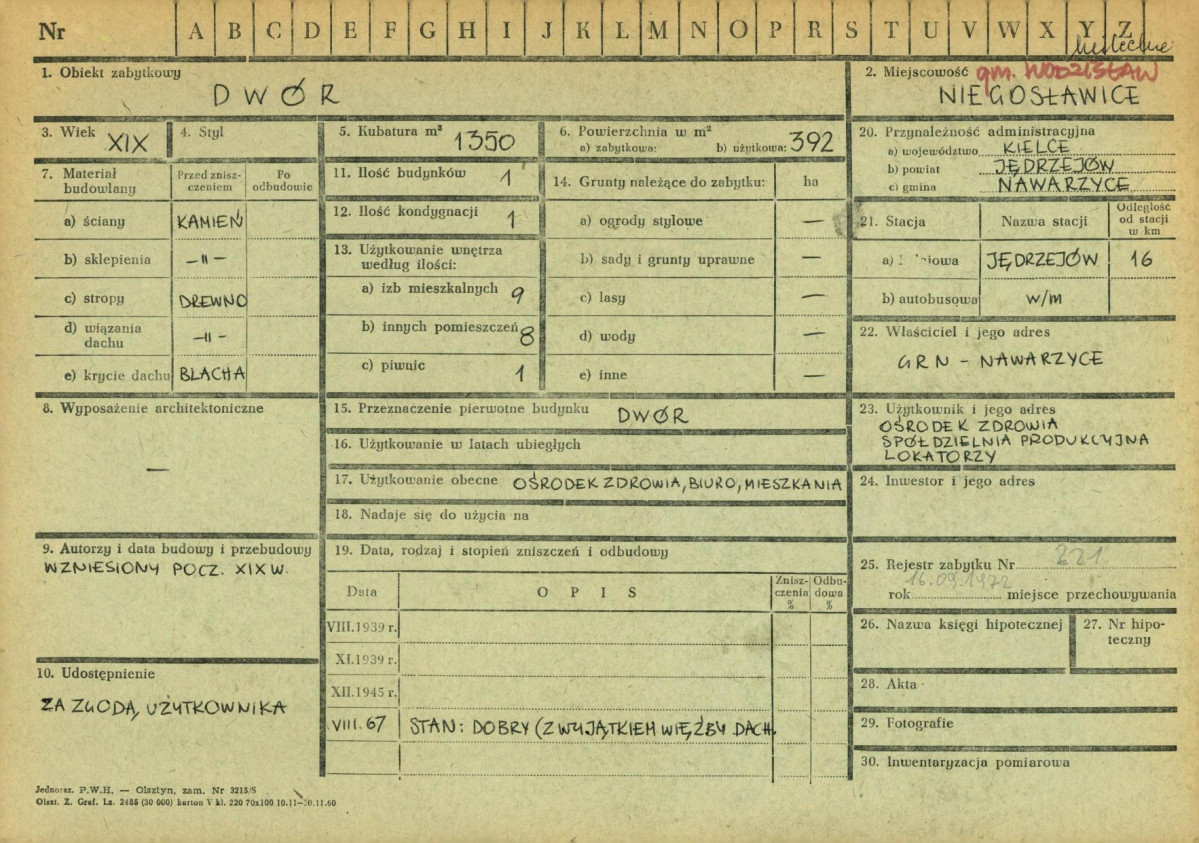 Nr A B C D E F G H I J K L M N O P R S T U V W X Y Z
1. Obiekt zabytkowy
DWÓR
2. Miejscowość gm. WODZISŁAW
NIEGOSŁAWICE
3. Wiek XIX
4. Styl
5. Kubatura m³ 1350
6. Powierzchnia w m²
a) zabytkowa: b) użytkowa: 392
7. Materiał budowlany
Przed zniszczeniem
Po odbudowie
a) ściany KAMIEŃ
b) sklepienia —〃—
c) stropy DREWNO
d) wiązania dachu —〃—
e) krycie dachu BLACHA
8. Wyposażenie architektoniczne
—
9. Autorzy i data budowy i przebudowy
WZNIESIONY POCZ. XIX W.
10. Udostępnienie
ZA ZGODĄ UŻYTKOWNIKA
11. Ilość budynków 1
12. Ilość kondygnacji 1
13. Użytkowanie wnętrza według ilości:
a) izb mieszkalnych 9
b) innych pomieszczeń 8
c) piwnic 1
14. Grunty należące do zabytku: ha
a) ogrody stylowe —
b) sady i grunty uprawne —
c) lasy —
d) wody —
e) inne —
15. Przeznaczenie pierwotne budynku DWÓR
16. Użytkowanie w latach ubiegłych
17. Użytkowanie obecne OŚRODEK ZDROWIA, BIURO, MIESZKANIA
18. Nadaje się do użycia na
19. Data, rodzaj i stopień zniszczeń i odbudowy
Data OPIS Zniszczenia % Odbudowa %
VIII.1939 r.
XI.1939 r.
XII.1945 r.
VIII.67 STAN: DOBRY (Z WYJĄTKIEM WIĘŹBY DACH.
20. Przynależność administracyjna
a) województwo KIELCE
b) powiat JĘDRZEJÓW
c) gmina NAWARZYCE
21. Stacja Nazwa stacji Odległość od stacji w km
a) JĘDRZEJÓW 16
b) autobusowa w/m
22. Właściciel i jego adres
GRN - NAWARZYCE
23. Użytkownik i jego adres
OŚRODEK ZDROWIA
SPÓŁDZIELNIA PRODUKCYJNA
LOKATORZY
24. Inwestor i jego adres
25. Rejestr zabytku Nr 221
16.09.1972
rok miejsce przechowywania
26. Nazwa księgi hipotecznej
27. Nr hipoteczny
28. Akta
29. Fotografie
30. Inwentaryzacja pomiarowa
Jednoraz. P.W.H. — Olsztyn, zam. Nr 3215/S
Olszt. Z. Graf. Lz. 2485 (30 000) karton V kl. 220 70x100 10.11—30.11.60